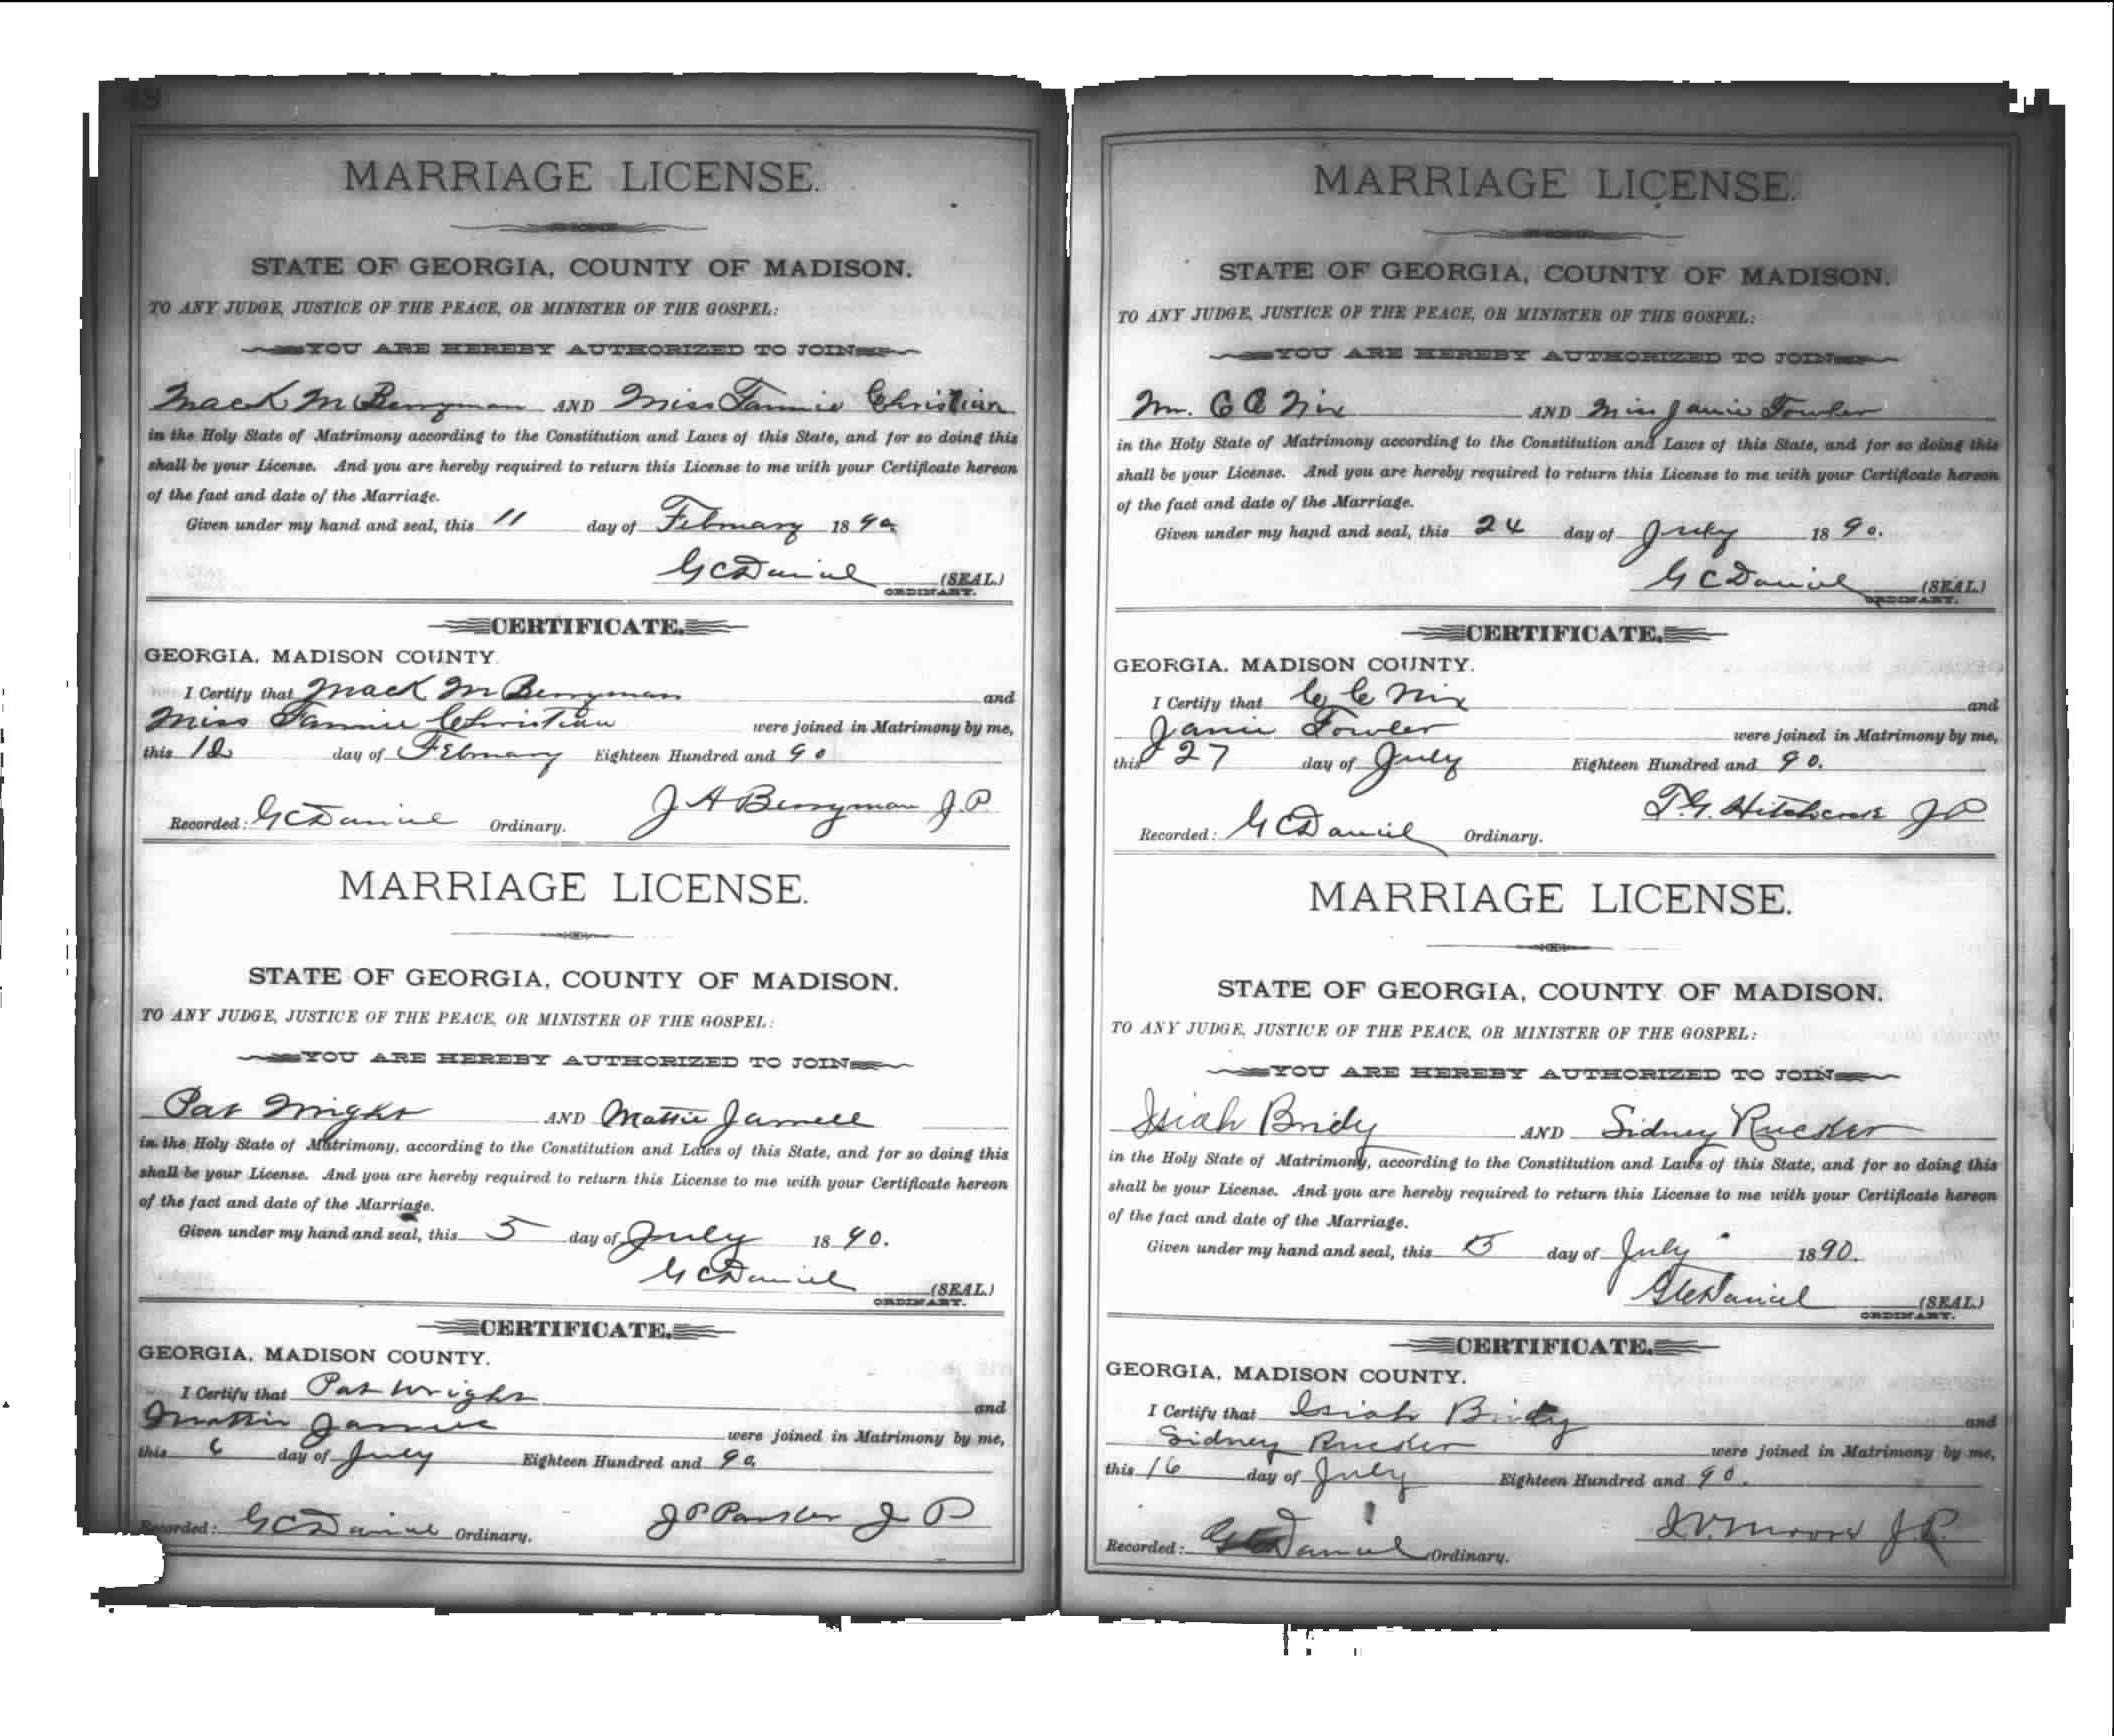 MARRIAGE LICENSE.
STATE OF GEORGIA, COUNTY OF MADISON.
TO ANY JUDGE, JUSTICE OF THE PEACE, OR MINISTER OF THE GOSPEL:
YOU ARE HEREBY AUTHORIZED TO JOIN
Mack M Berryman AND Miss Fannie Christian
in the Holy State of Matrimony according to the Constitution and Laws of this State, and for so doing this
shall be your License. And you are hereby required to return this License to me with your Certificate hereon
of the fact and date of the Marriage.
Given under my hand and seal, this 11 day of February 1890.
G C Daniel (SEAL.)
ORDINARY.
CERTIFICATE.
GEORGIA, MADISON COUNTY.
I Certify that Mack M Berryman and
Miss Fannie Christian were joined in Matrimony by me,
this 12 day of February Eighteen Hundred and 90
Recorded: G C Daniel Ordinary. J A Berryman J.P.
MARRIAGE LICENSE.
STATE OF GEORGIA, COUNTY OF MADISON.
TO ANY JUDGE, JUSTICE OF THE PEACE, OR MINISTER OF THE GOSPEL:
YOU ARE HEREBY AUTHORIZED TO JOIN
Pat Wright AND Mattie Jarrell
in the Holy State of Matrimony, according to the Constitution and Laws of this State, and for so doing this
shall be your License. And you are hereby required to return this License to me with your Certificate hereon
of the fact and date of the Marriage.
Given under my hand and seal, this 5 day of July 1890.
G C Daniel (SEAL.)
ORDINARY.
CERTIFICATE.
GEORGIA, MADISON COUNTY.
I Certify that Pat Wright and
Mattie were joined in Matrimony by me,
this 6 day of July Eighteen Hundred and 90.
Recorded: G C Daniel Ordinary. J P
MARRIAGE LICENSE.
STATE OF GEORGIA, COUNTY OF MADISON.
TO ANY JUDGE, JUSTICE OF THE PEACE, OR MINISTER OF THE GOSPEL:
YOU ARE HEREBY AUTHORIZED TO JOIN
Nix AND Miss Janie Fowler
in the Holy State of Matrimony according to the Constitution and Laws of this State, and for so doing this
shall be your License. And you are hereby required to return this License to me with your Certificate hereon
of the fact and date of the Marriage.
Given under my hand and seal, this 24 day of July 1890.
G C Daniel (SEAL.)
ORDINARY.
CERTIFICATE.
GEORGIA, MADISON COUNTY.
I Certify that C C Nix and
Janie Fowler were joined in Matrimony by me,
this 27 day of July Eighteen Hundred and 90.
Recorded: G C Daniel Ordinary. T. G. Hitchcock JP
MARRIAGE LICENSE.
STATE OF GEORGIA, COUNTY OF MADISON.
TO ANY JUDGE, JUSTICE OF THE PEACE, OR MINISTER OF THE GOSPEL:
YOU ARE HEREBY AUTHORIZED TO JOIN
Isiah Bridy AND Sidney Rucker
in the Holy State of Matrimony, according to the Constitution and Laws of this State, and for so doing this
shall be your License. And you are hereby required to return this License to me with your Certificate hereon
of the fact and date of the Marriage.
Given under my hand and seal, this 15 day of July 1890.
G C Daniel (SEAL.)
ORDINARY.
CERTIFICATE.
GEORGIA, MADISON COUNTY.
I Certify that Isiah Bridy and
Sidney Rucker were joined in Matrimony by me,
this 16 day of July Eighteen Hundred and 90.
Recorded: G C Daniel Ordinary. Moore J.P.